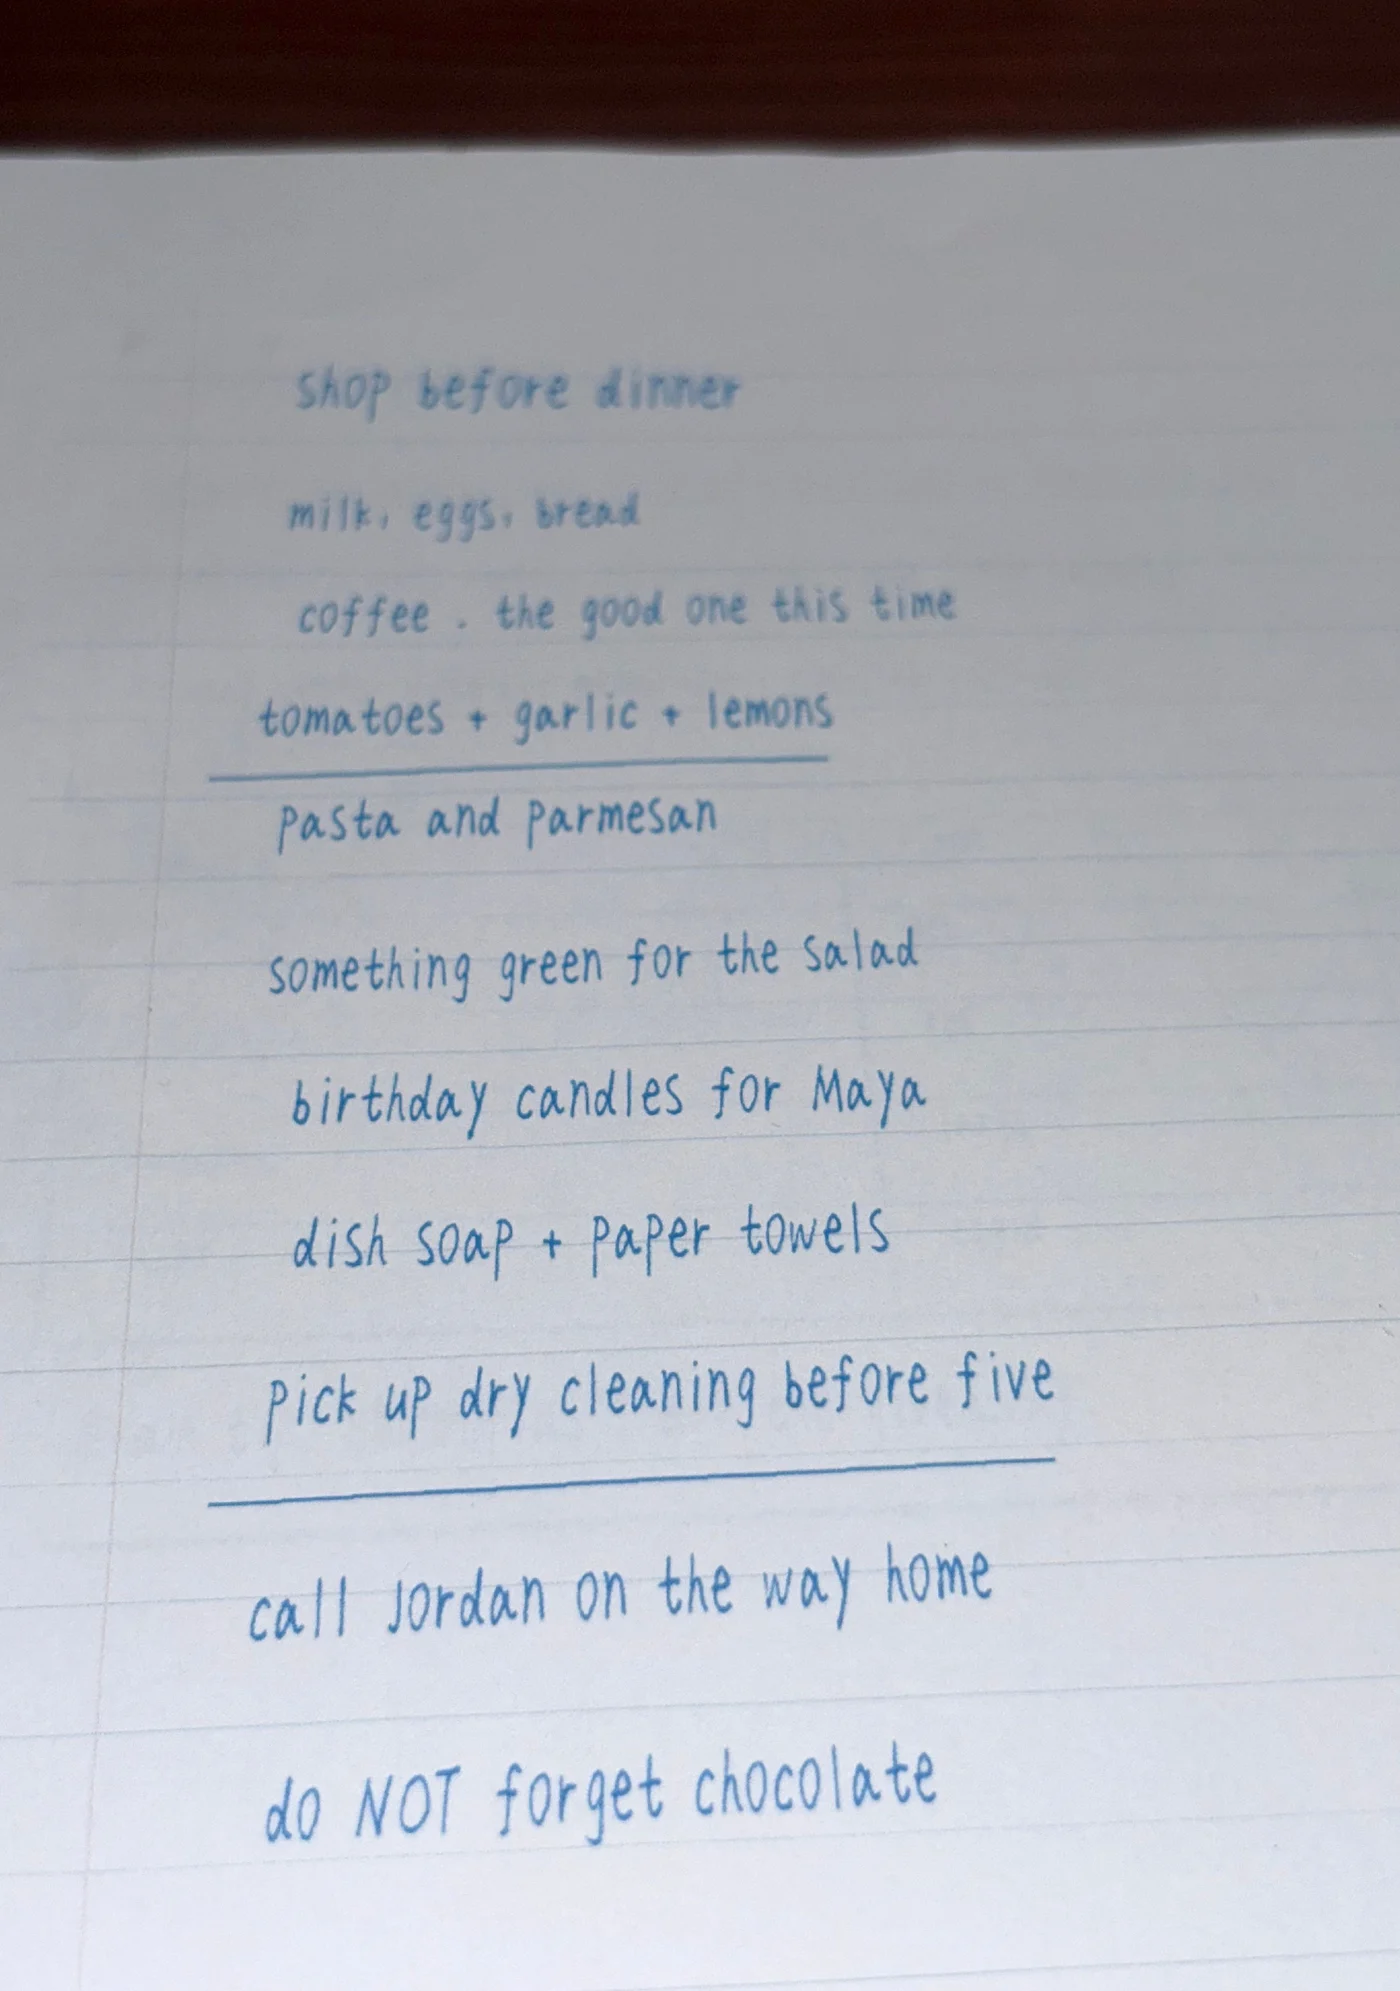 shop before dinner
milk, eggs, bread
coffee . the good one this time
tomatoes + garlic + lemons
pasta and parmesan
something green for the salad
birthday candles for Maya
dish soap + paper towels
pick up dry cleaning before five
call Jordan on the way home
do NOT forget chocolate